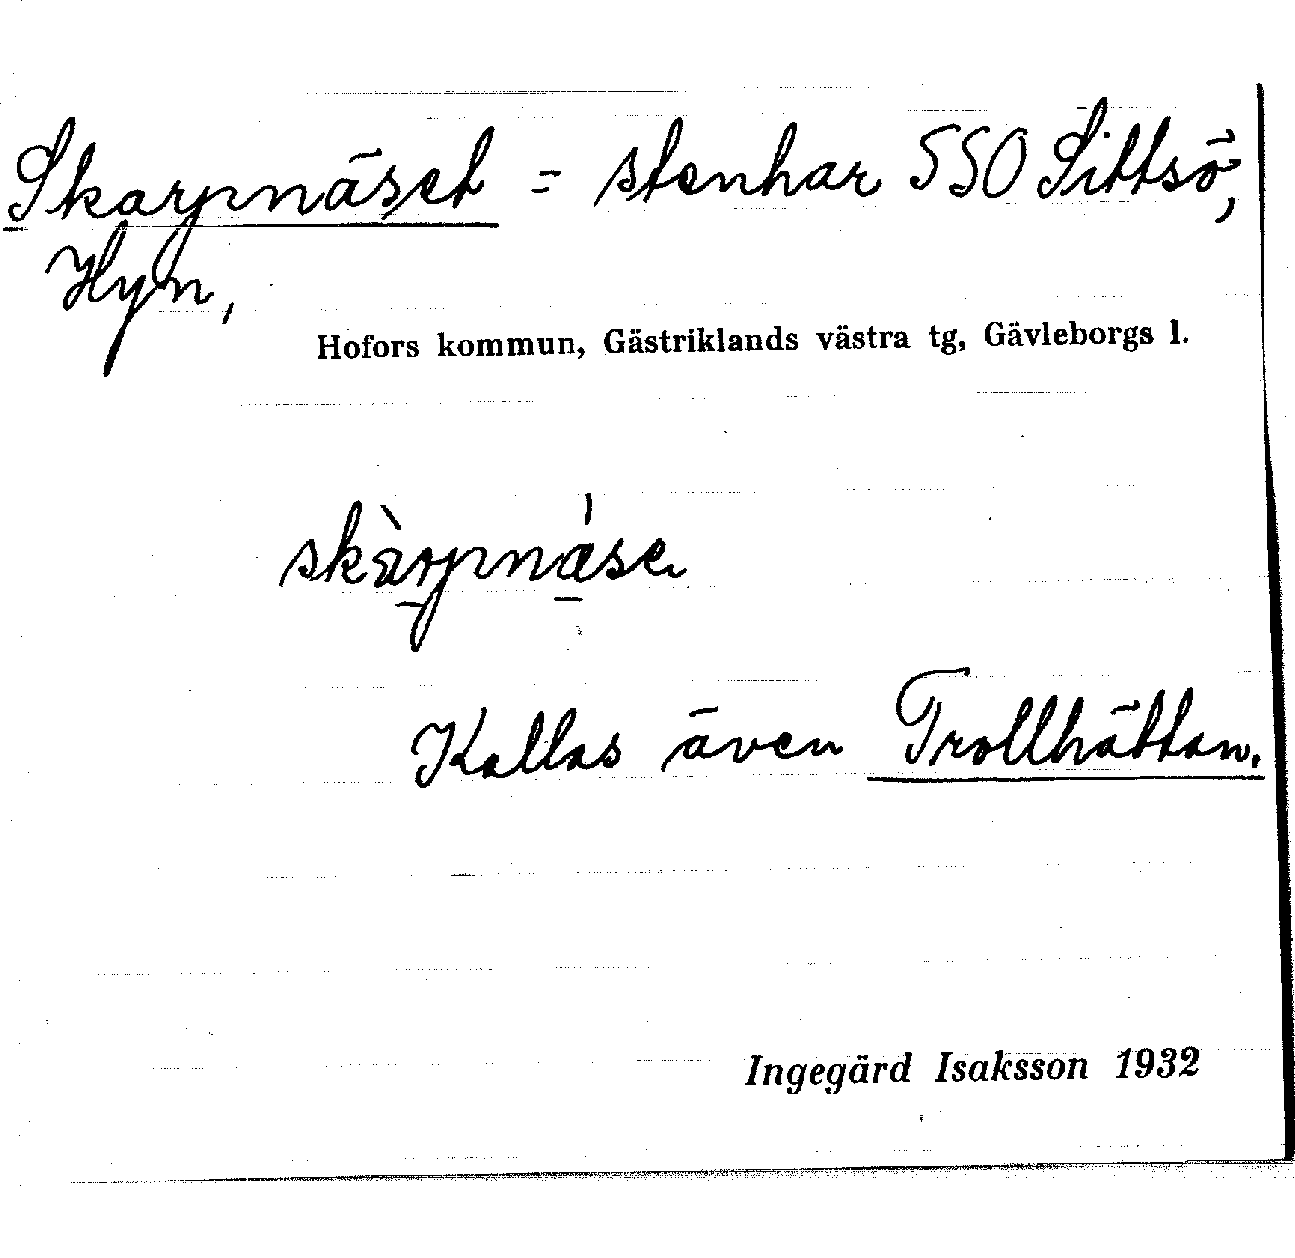 Skarpnäset = stenhar SSO Sittsö,
Hyn,
Hofors kommun, Gästriklands västra tg, Gävleborgs l.
skàrpnáse
Kallas även Trollhättan.
Ingegärd Isaksson 1932